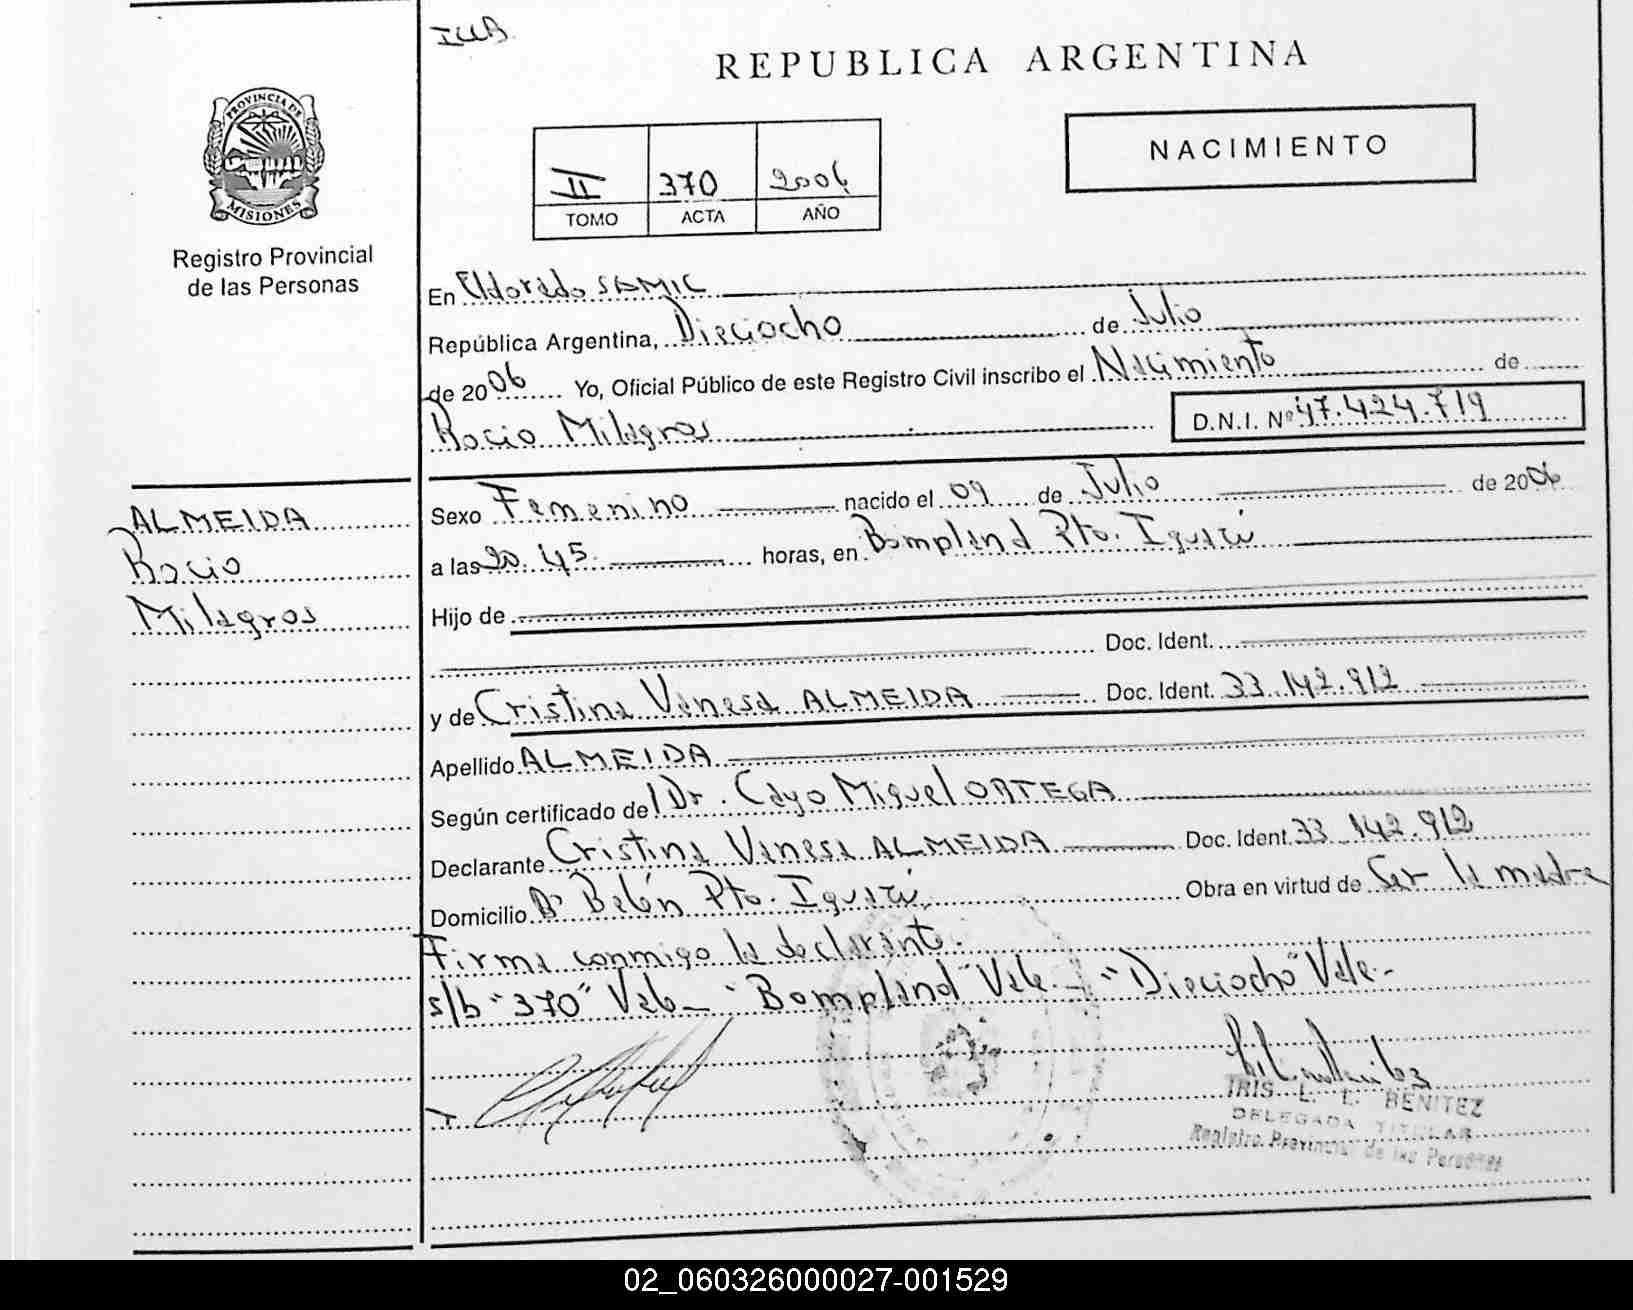 REPUBLICA ARGENTINA
PROVINCIA DE
MISIONES
Registro Provincial
de las Personas
NACIMIENTO
II 370 2006
TOMO ACTA AÑO
En Eldorado SAMIC
República Argentina, Dieciocho de Julio
de 2006 Yo, Oficial Público de este Registro Civil inscribo el Nacimiento de
Rocio Milagros D.N.I. Nº 47.424.719
ALMEIDA
Rocio
Milagros
Sexo Femenino nacido el 09 de Julio de 2006
a las 20.45. horas, en Bompland Pto. Iguazú
Hijo de
Doc. Ident.
y de Cristina Vanesa ALMEIDA Doc. Ident. 33.142.912
Apellido ALMEIDA
Según certificado del Dr. Cayo Miguel ORTEGA
Declarante Cristina Vanesa ALMEIDA Doc. Ident. 33.142.912
Domicilio Bº Belén Pto. Iguazú. Obra en virtud de Ser la madre
Firma conmigo la declarante.
s/b "370" Vale- "Bompland" Vale.- "Dieciocho" Vale.-
IRIS L. L. BENITEZ
DELEGADA TITULAR
Registro Provincial de las Personas
02_060326000027-001529